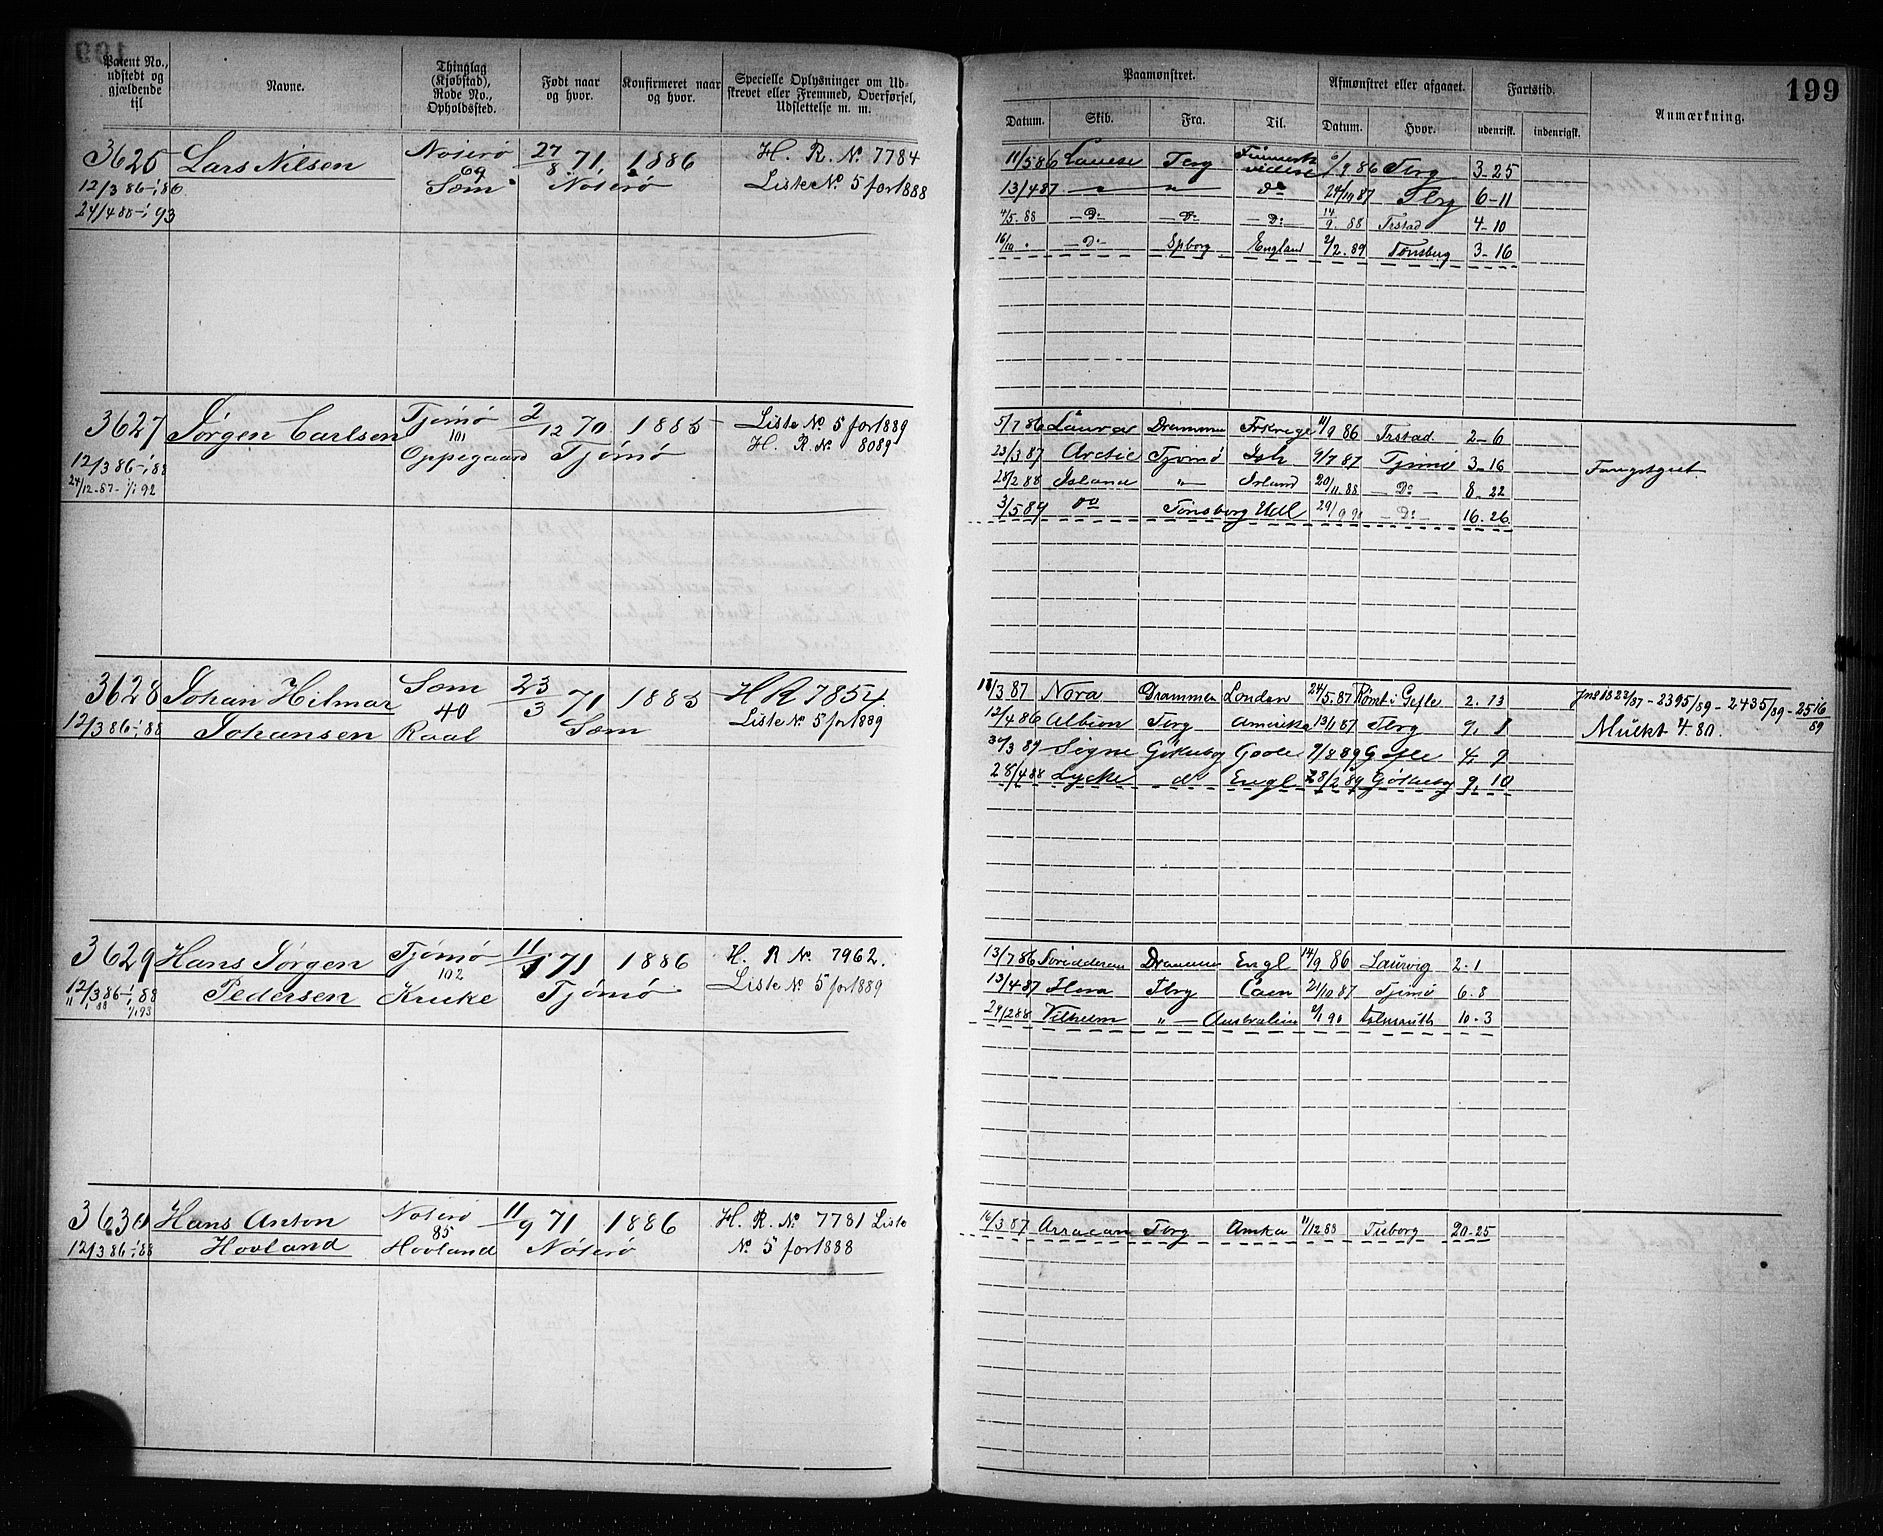 Patent No., udstedt og gjældende til
Navne.
Thinglag (Kjøbstad), Rode No., Opholdssted.
Født naar og hvor.
Konfirmeret naar og hvor.
Specielle Oplysninger om Udskrevet eller Fremmed, Overførsel, Udslettelse m. m.
Paamønstret.
Datum. Skib. Fra. Til.
Afmønstret eller afgaaet.
Datum. Hvor.
Fartstid.
udenrisk. indenrigsk.
Anmærkning.
199
3625 Lars Nilsen Nøterø 27/8 71 1886 H. R. No 7784
12/3 86-1/1 86 69 Sem Nøterø Liste No 5 for 1888
24/4 88-1/1 93
11/5 86 Tbrg 86 Tbrg 3-25
13/4 87 — " — " do 24/10 87 Tbrg 6-11
4/5. 88 — Do — — Do — — Do 14/9. 88 Trstad 4-10
16/10 " — Do — Spborg England 2/2. 89 Tønsberg 3-16
3627 Jørgen Carlsen Tjømø 2/12 70 1885 Liste No 5 for 1889
12/3 86-1/1 88 101 Oppegaard Tjømø H. R. No 8089
24/12-87-1/1 92
5/7 86 Laura Dramme Frkrige 11/9 86 Trstad. 2-6
23/3 87 Arctic Tjømø Ish 9/7 87 Tjømø 3-16 Fangstgiet
28/2 88 Island " — Island 20/11. 88 — Do — 8. 22
3/5 89 do Tønsborg Udl 29/9 90 — Do — 16. 26
3628 Johan Hilmar Sem 23/3 71 1885 H R 7854
12/3 86-1/1 88 Johansen 40 Raal Sem Liste No 5 for 1889
18/3 87 Nora Drammen London 24/5. 87 Rømt i Gefle 2. 13
12/4 86 Albion Tbrg Amerika 13/1 87 Tbrg 9. 8
Mulkt 4-80.
89 Signe Gøteborg Goole 7/8 89 Gefle 4. 9
28/4 88 Lycke do Engl 28/2 89 Gøteborg 9. 10
3629 Hans Jørgen Tjømø 11/1 71 1886 H. R No 7962.
12/3 86-1/1 88 Pedersen 102 Kruke Tjømø Liste No 5 for 1889
13/7 86 Drammen Engl 14/9 86 Laurvig 2. 1
13/4 87 Flora Tbrg Caen 21/10 87 Tjømø 6. 8
29/2 88 Vilhelm " — Australien 90 Falmouth 10. 3
3630 Hans Anton Nøterø 11/9 71 1886 H. R. No 7781 Liste
12/3 86-1/1 88 Hovland 85 Hovland Nøterø No 5 for 1888
16/3 87 Arracan Tbrg Amka 11/12 88 20-25